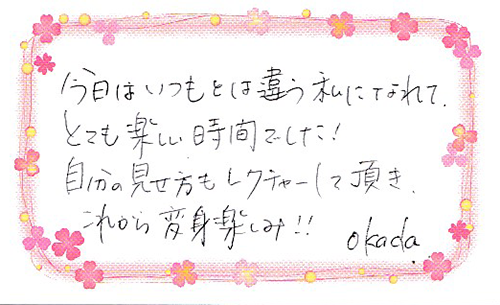 今日はいつもとは違う私になれて、
とても楽しい時間でした！
自分の見せ方もレクチャーして頂き、
これから変身楽しみ!!
okada.